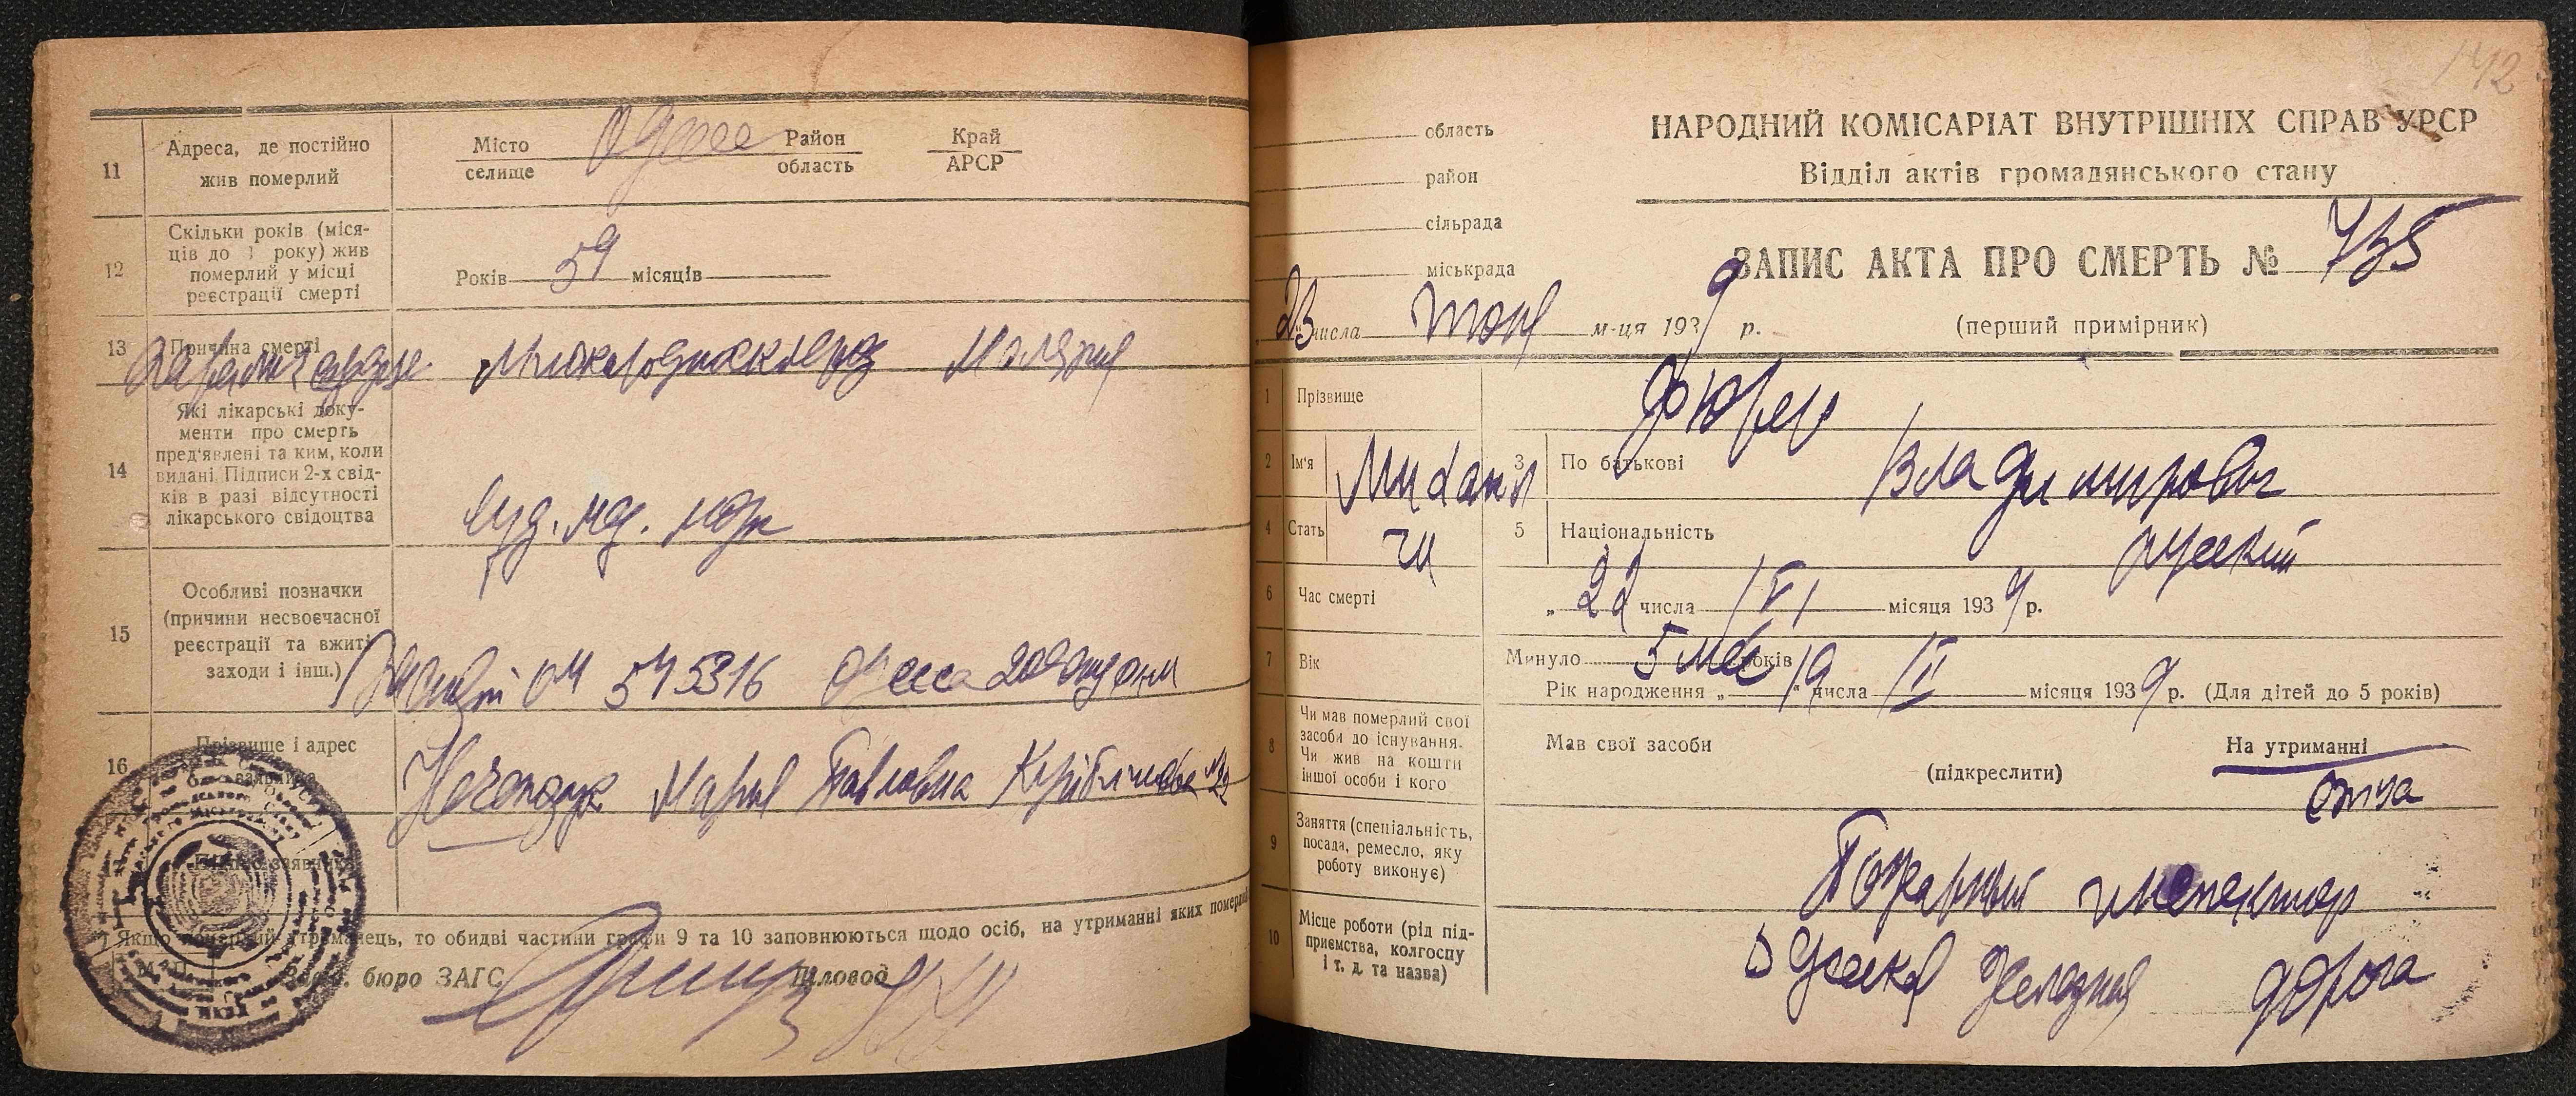 11
Адреса, де постійно
жив померлий
Місто
селище
Одесса
Район
область
Край
АРСР
12
Скільки років (міся-
ців до 1 року) жив
померлий у місці
реєстрації смерті
Років 59 місяців
13
Причина смерті
Паралич сердца
Миокардиосклероз
Малярия
14
Які лікарські доку-
менти про смерть
пред'явлені та ким, коли
видані. Підписи 2-х свід-
ків в разі відсутності
лікарського свідоцтва
Суд. мед.
15
Особливі позначки
(причини несвоєчасної
реєстрації та вжиті
заходи і інш.)
575316 Одесса
16
Прізвище і адрес
заявника
Мария Павловна
Підпис заявника
Якщо померлий утриманець, то обидві частини графи 9 та 10 заповнюються щодо осіб, на утриманні яких померлий
М. П.
Зав. бюро ЗАГС
Діловод
142
область
район
сільрада
міськрада
НАРОДНИЙ КОМІСАРІАТ ВНУТРІШНІХ СПРАВ УРСР
Відділ актів громадянського стану
ЗАПИС АКТА ПРО СМЕРТЬ № 735
„23" числа июня м-ця 1939 р.
(перший примірник)
1
Прізвище
2
Ім'я
Михаил
3
По батькові
Владимирович
4
Стать
м
5
Національність
русский
6
Час смерті
„22 числа VI місяця 1939 р.
7
Вік
Минуло 5 мес років
Рік народження „19" числа II місяця 1939 р. (Для дітей до 5 років)
8
Чи мав померлий свої
засоби до існування.
Чи жив на кошти
іншої особи і кого
Мав свої засоби
(підкреслити)
На утриманні
отца
9
Заняття (спеціальність,
посада, ремесло, яку
роботу виконує)
Пожарный инспектор
10
Місце роботи (рід під-
приємства, колгоспу
і т. д. та назва)
Одесская Железная дорога